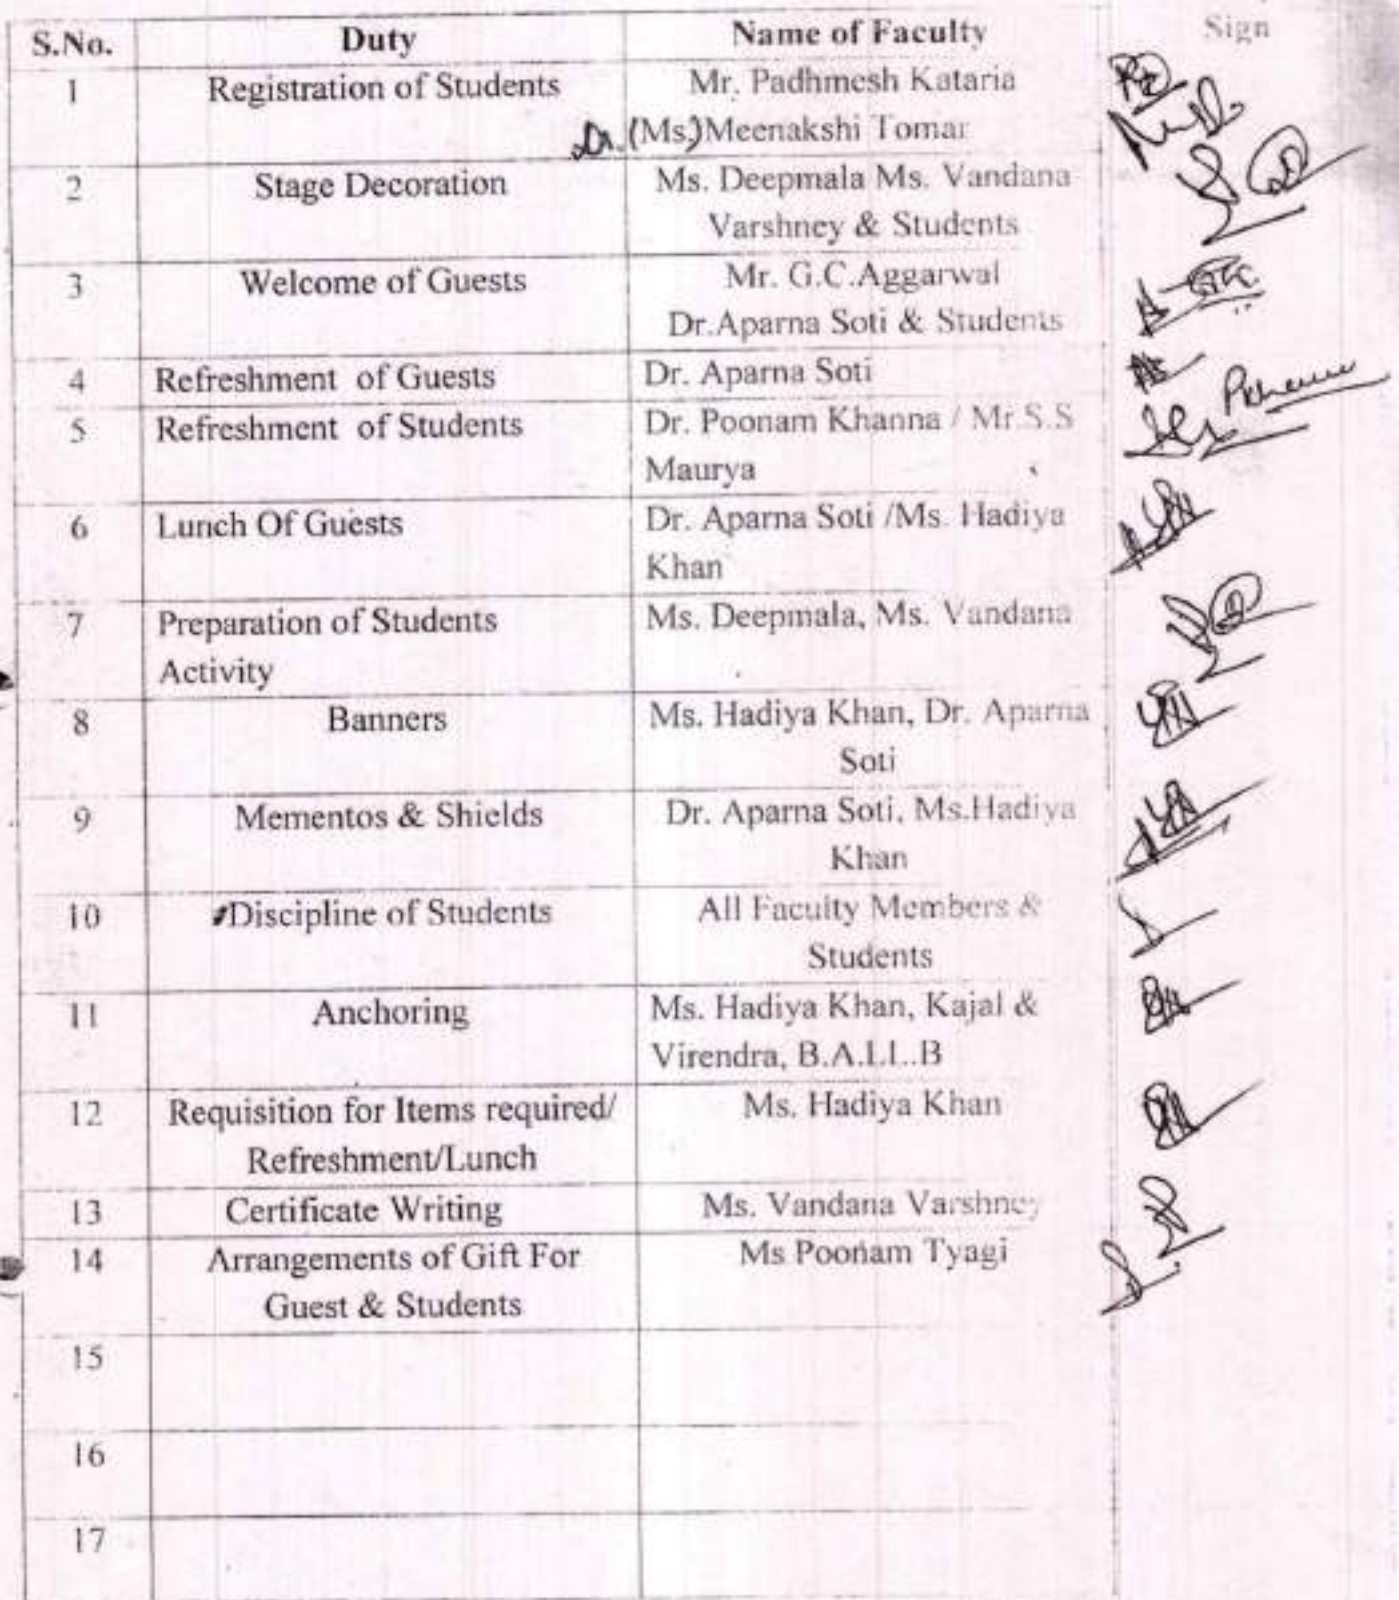 S.No. Duty Name of Faculty Sign
1 Registration of Students Mr. Padhmesh Kataria
Dr. (Ms.) Meenakshi Tomar
2 Stage Decoration Ms. Deepmala Ms. Vandana
Varshney & Students
3 Welcome of Guests Mr. G.C.Aggarwal
Dr.Aparna Soti & Students
4 Refreshment of Guests Dr. Aparna Soti
5 Refreshment of Students Dr. Poonam Khanna / Mr.S.S
Maurya
6 Lunch Of Guests Dr. Aparna Soti /Ms. Hadiya
Khan
7 Preparation of Students Ms. Deepmala, Ms. Vandana
Activity
8 Banners Ms. Hadiya Khan, Dr. Aparna
Soti
9 Mementos & Shields Dr. Aparna Soti, Ms.Hadiya
Khan
10 Discipline of Students All Faculty Members &
Students
11 Anchoring Ms. Hadiya Khan, Kajal &
Virendra, B.A.LL.B
12 Requisition for Items required/ Ms. Hadiya Khan
Refreshment/Lunch
13 Certificate Writing Ms. Vandana Varshney
14 Arrangements of Gift For Ms Poonam Tyagi
Guest & Students
15
16
17